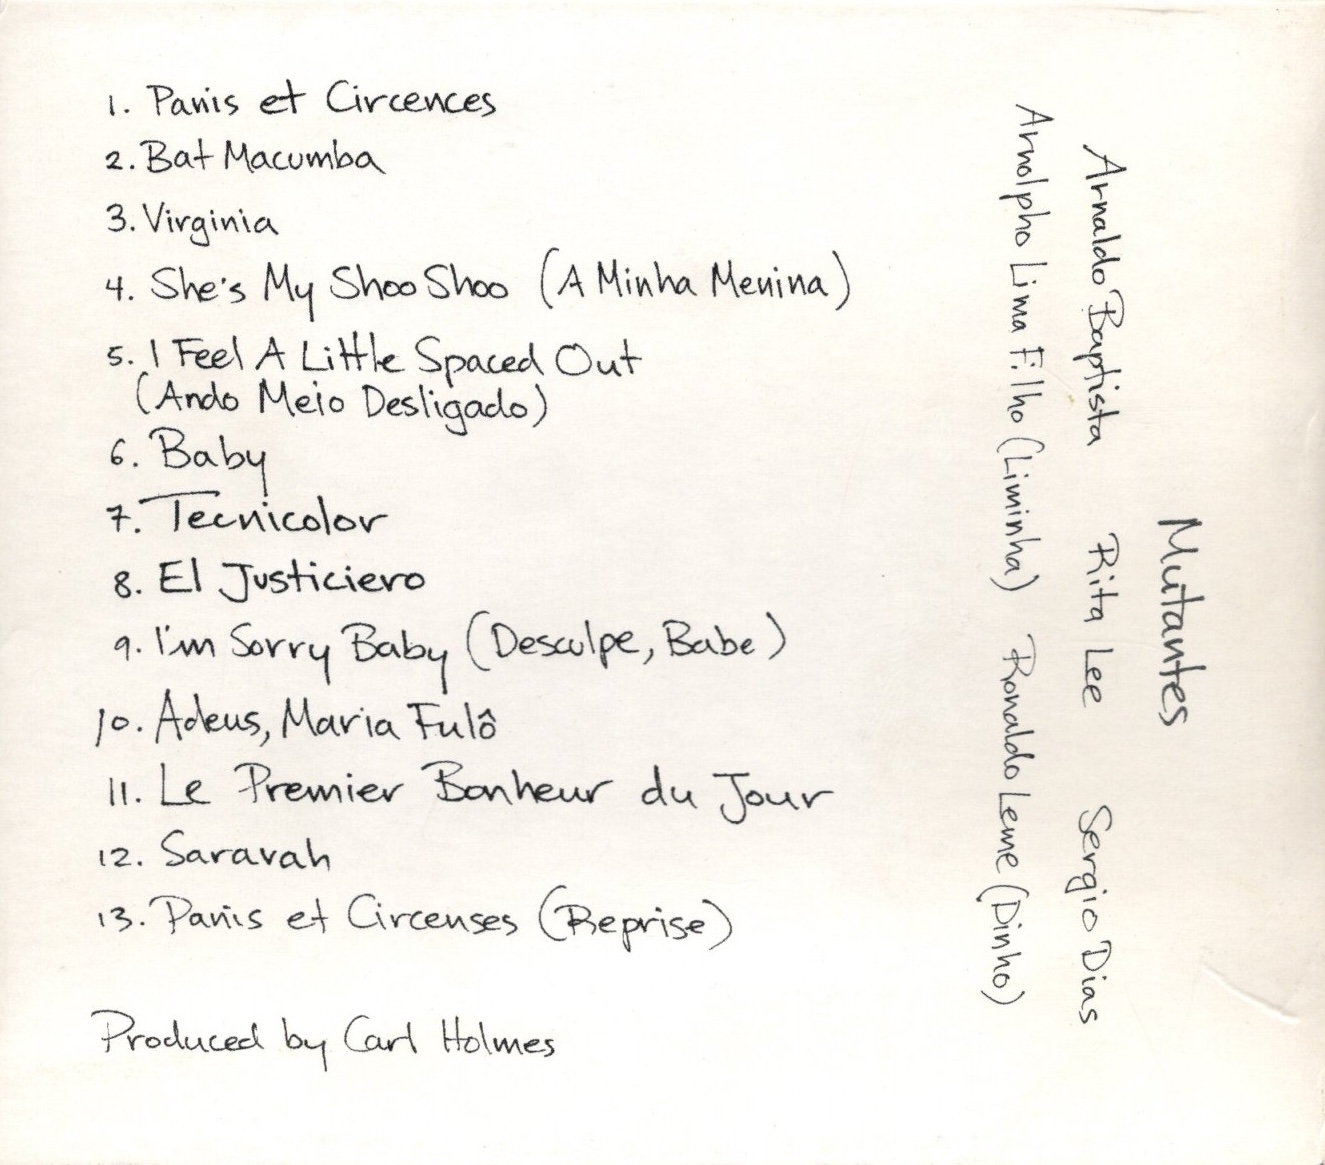 1. Panis et Circences
2. Bat Macumba
3. Virginia
4. She's My Shoo Shoo (A Minha Menina)
5. I Feel A Little Spaced Out
(Ando Meio Desligado)
6. Baby
7. Tecnicolor
8. El Justiciero
9. I'm Sorry Baby (Desculpe, Babe)
10. Adeus, Maria Fulô
11. Le Premier Bonheur du Jour
12. Saravah
13. Panis et Circenses (Reprise)
Produced by Carl Holmes
Mutantes
Arnaldo Baptista Rita Lee Sergio Dias
Arnolpho Lima Filho (Liminha) Ronaldo Leme (Dinho)